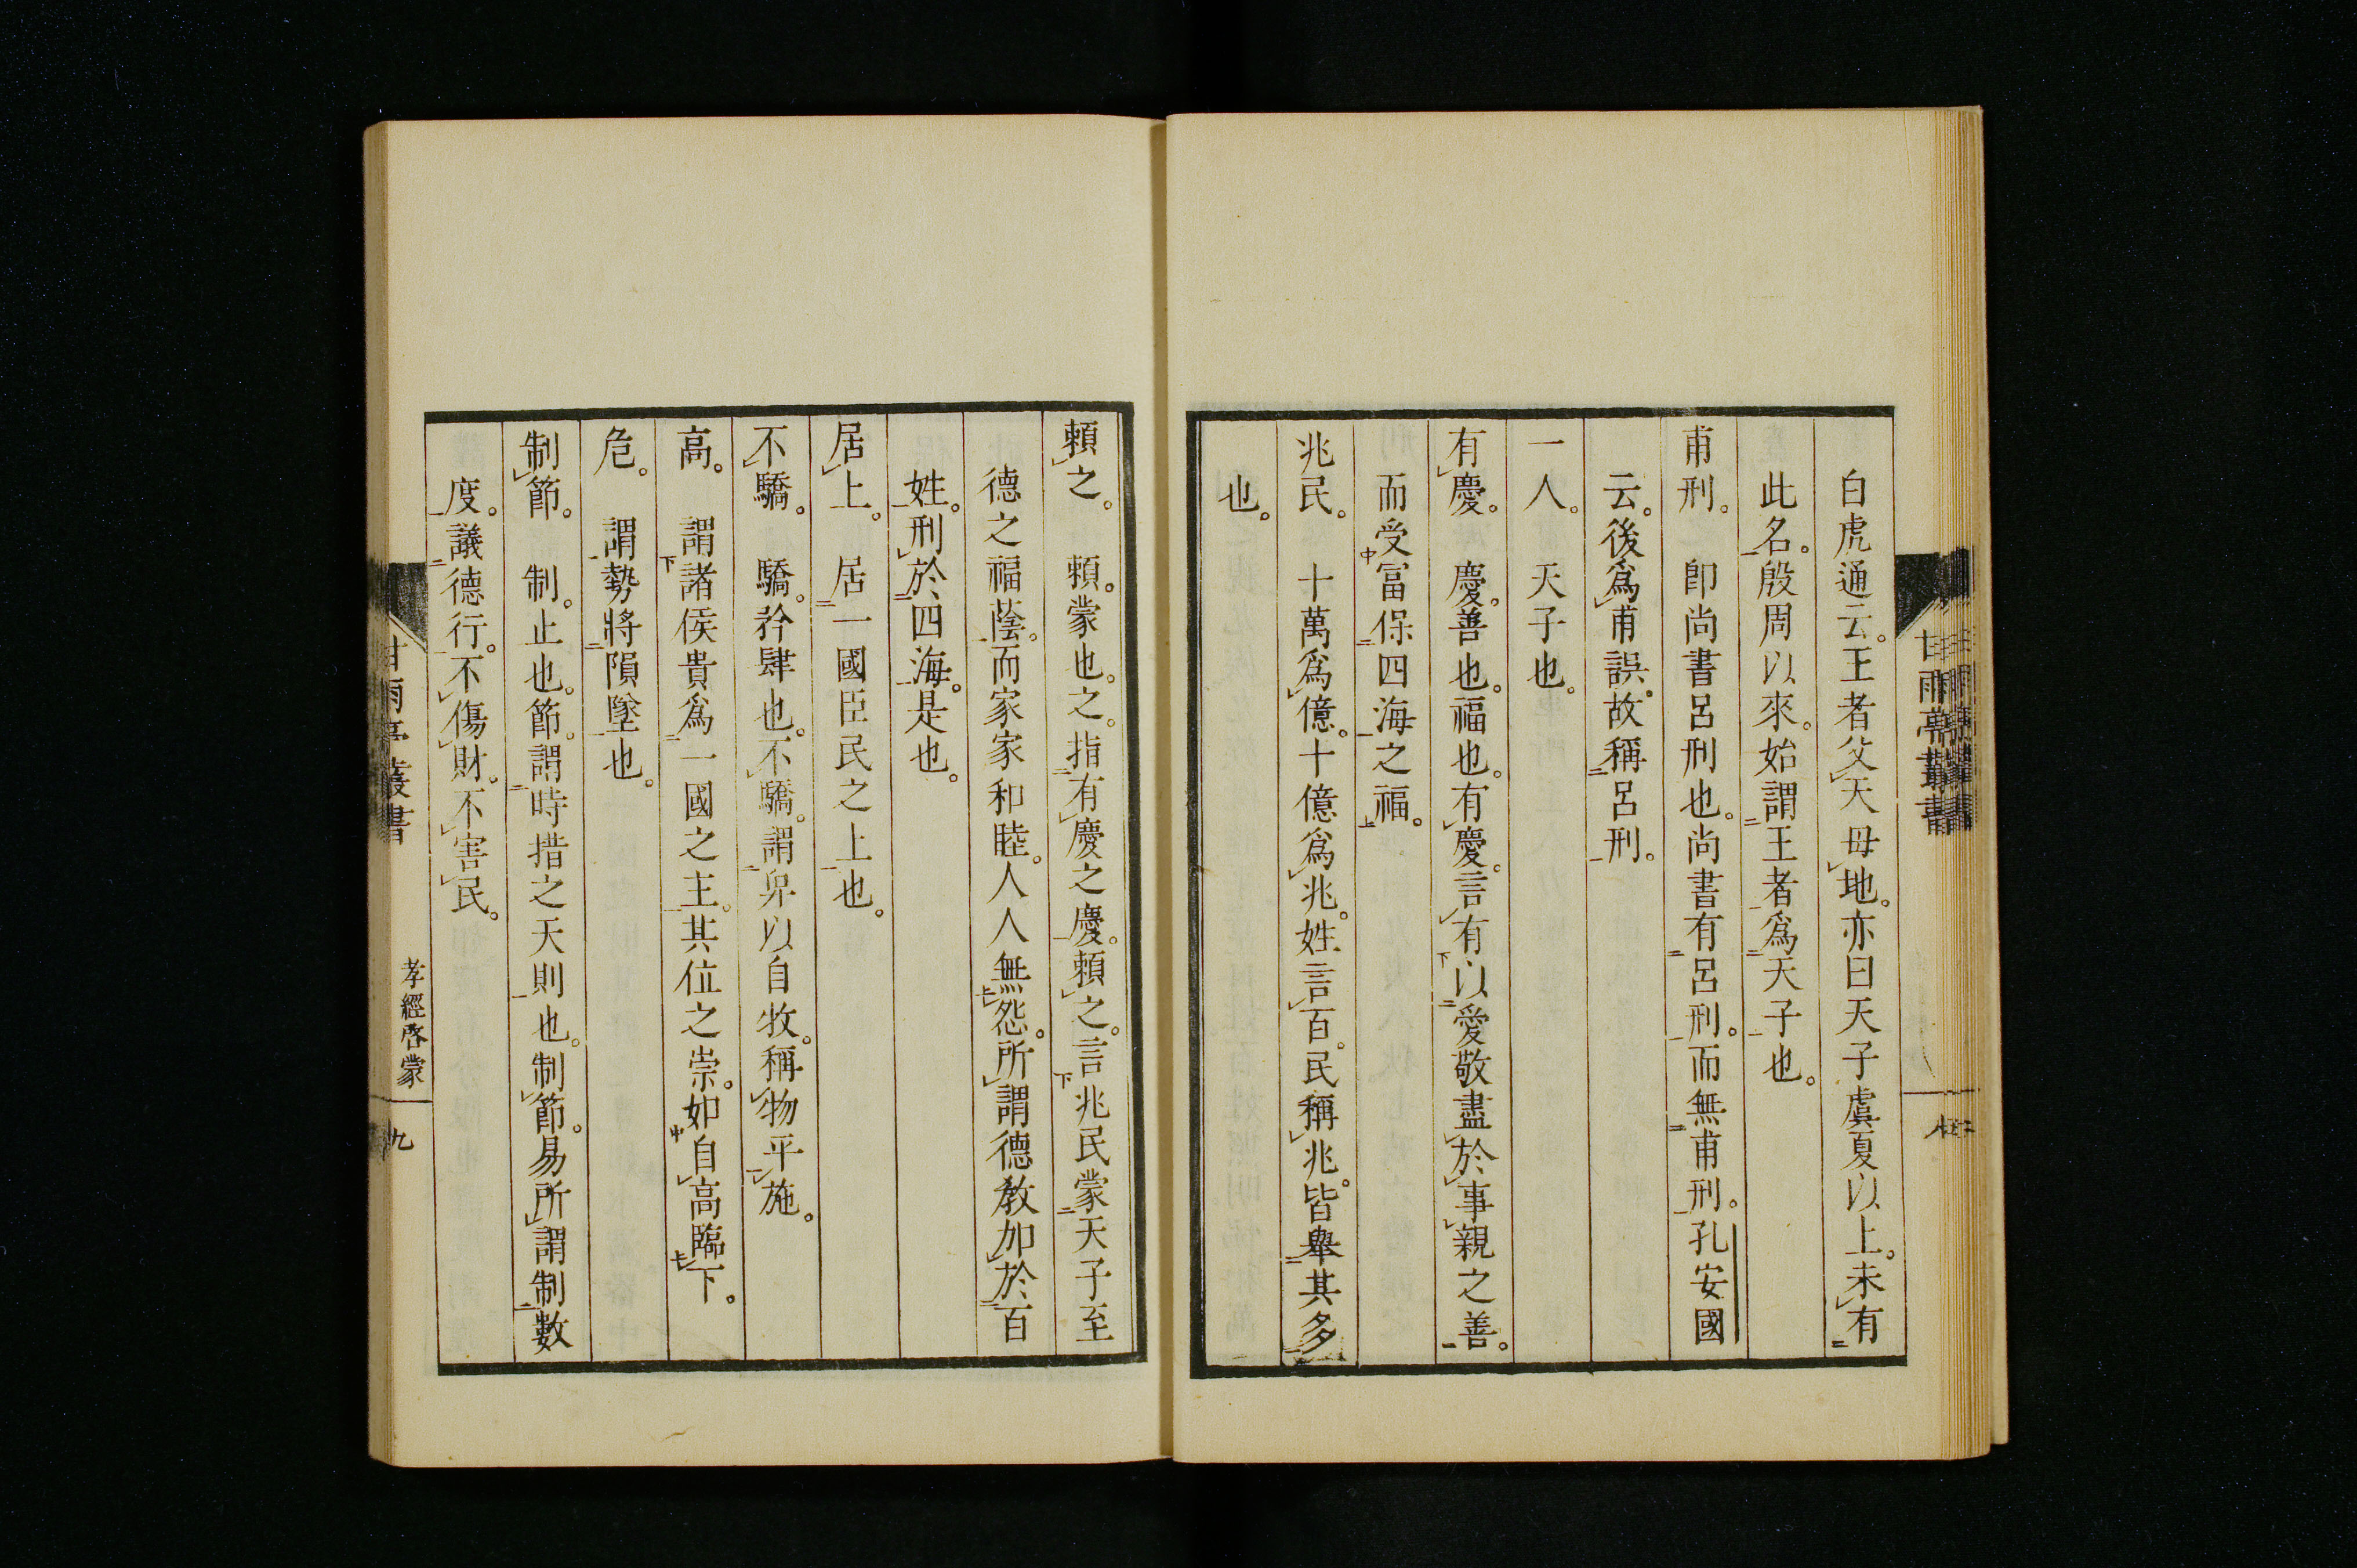 白虎通云。王者父天母地。亦曰天子虞夏以上。未有
此名。殷周以來。始謂王者爲天子也。
甫刑。　卽尚書呂刑也。尚書有呂刑。而無甫刑。孔安國
云。後爲甫誤。故稱呂刑。
一人。　天子也。
有慶。　慶。善也。福也。有慶。言有以愛敬盡於事親之善。
而受冨保四海之福。
兆民。　十萬爲億。十億爲兆。姓言百。民稱兆。皆舉其多
也。
甘雨亭叢書
頼之。　頼。蒙也。之。指有慶之慶。頼之。言兆民蒙天子至
德之福蔭。而家家和睦。人人無怨。所謂德教加於百
姓。刑於四海。是也。
居上。　居一國臣民之上也。
不驕。　驕。矜肆也。不驕。謂卑以自牧。稱物平施。
高。　謂諸侯貴爲一國之主。其位之崇。如自高臨下。
危。　謂勢將隕墜也。
制節。　制。止也。節。謂時措之天則也。制節。易所謂制數
度。議德行。不傷財。不害民。
甘雨亭叢書　孝經啓蒙　九